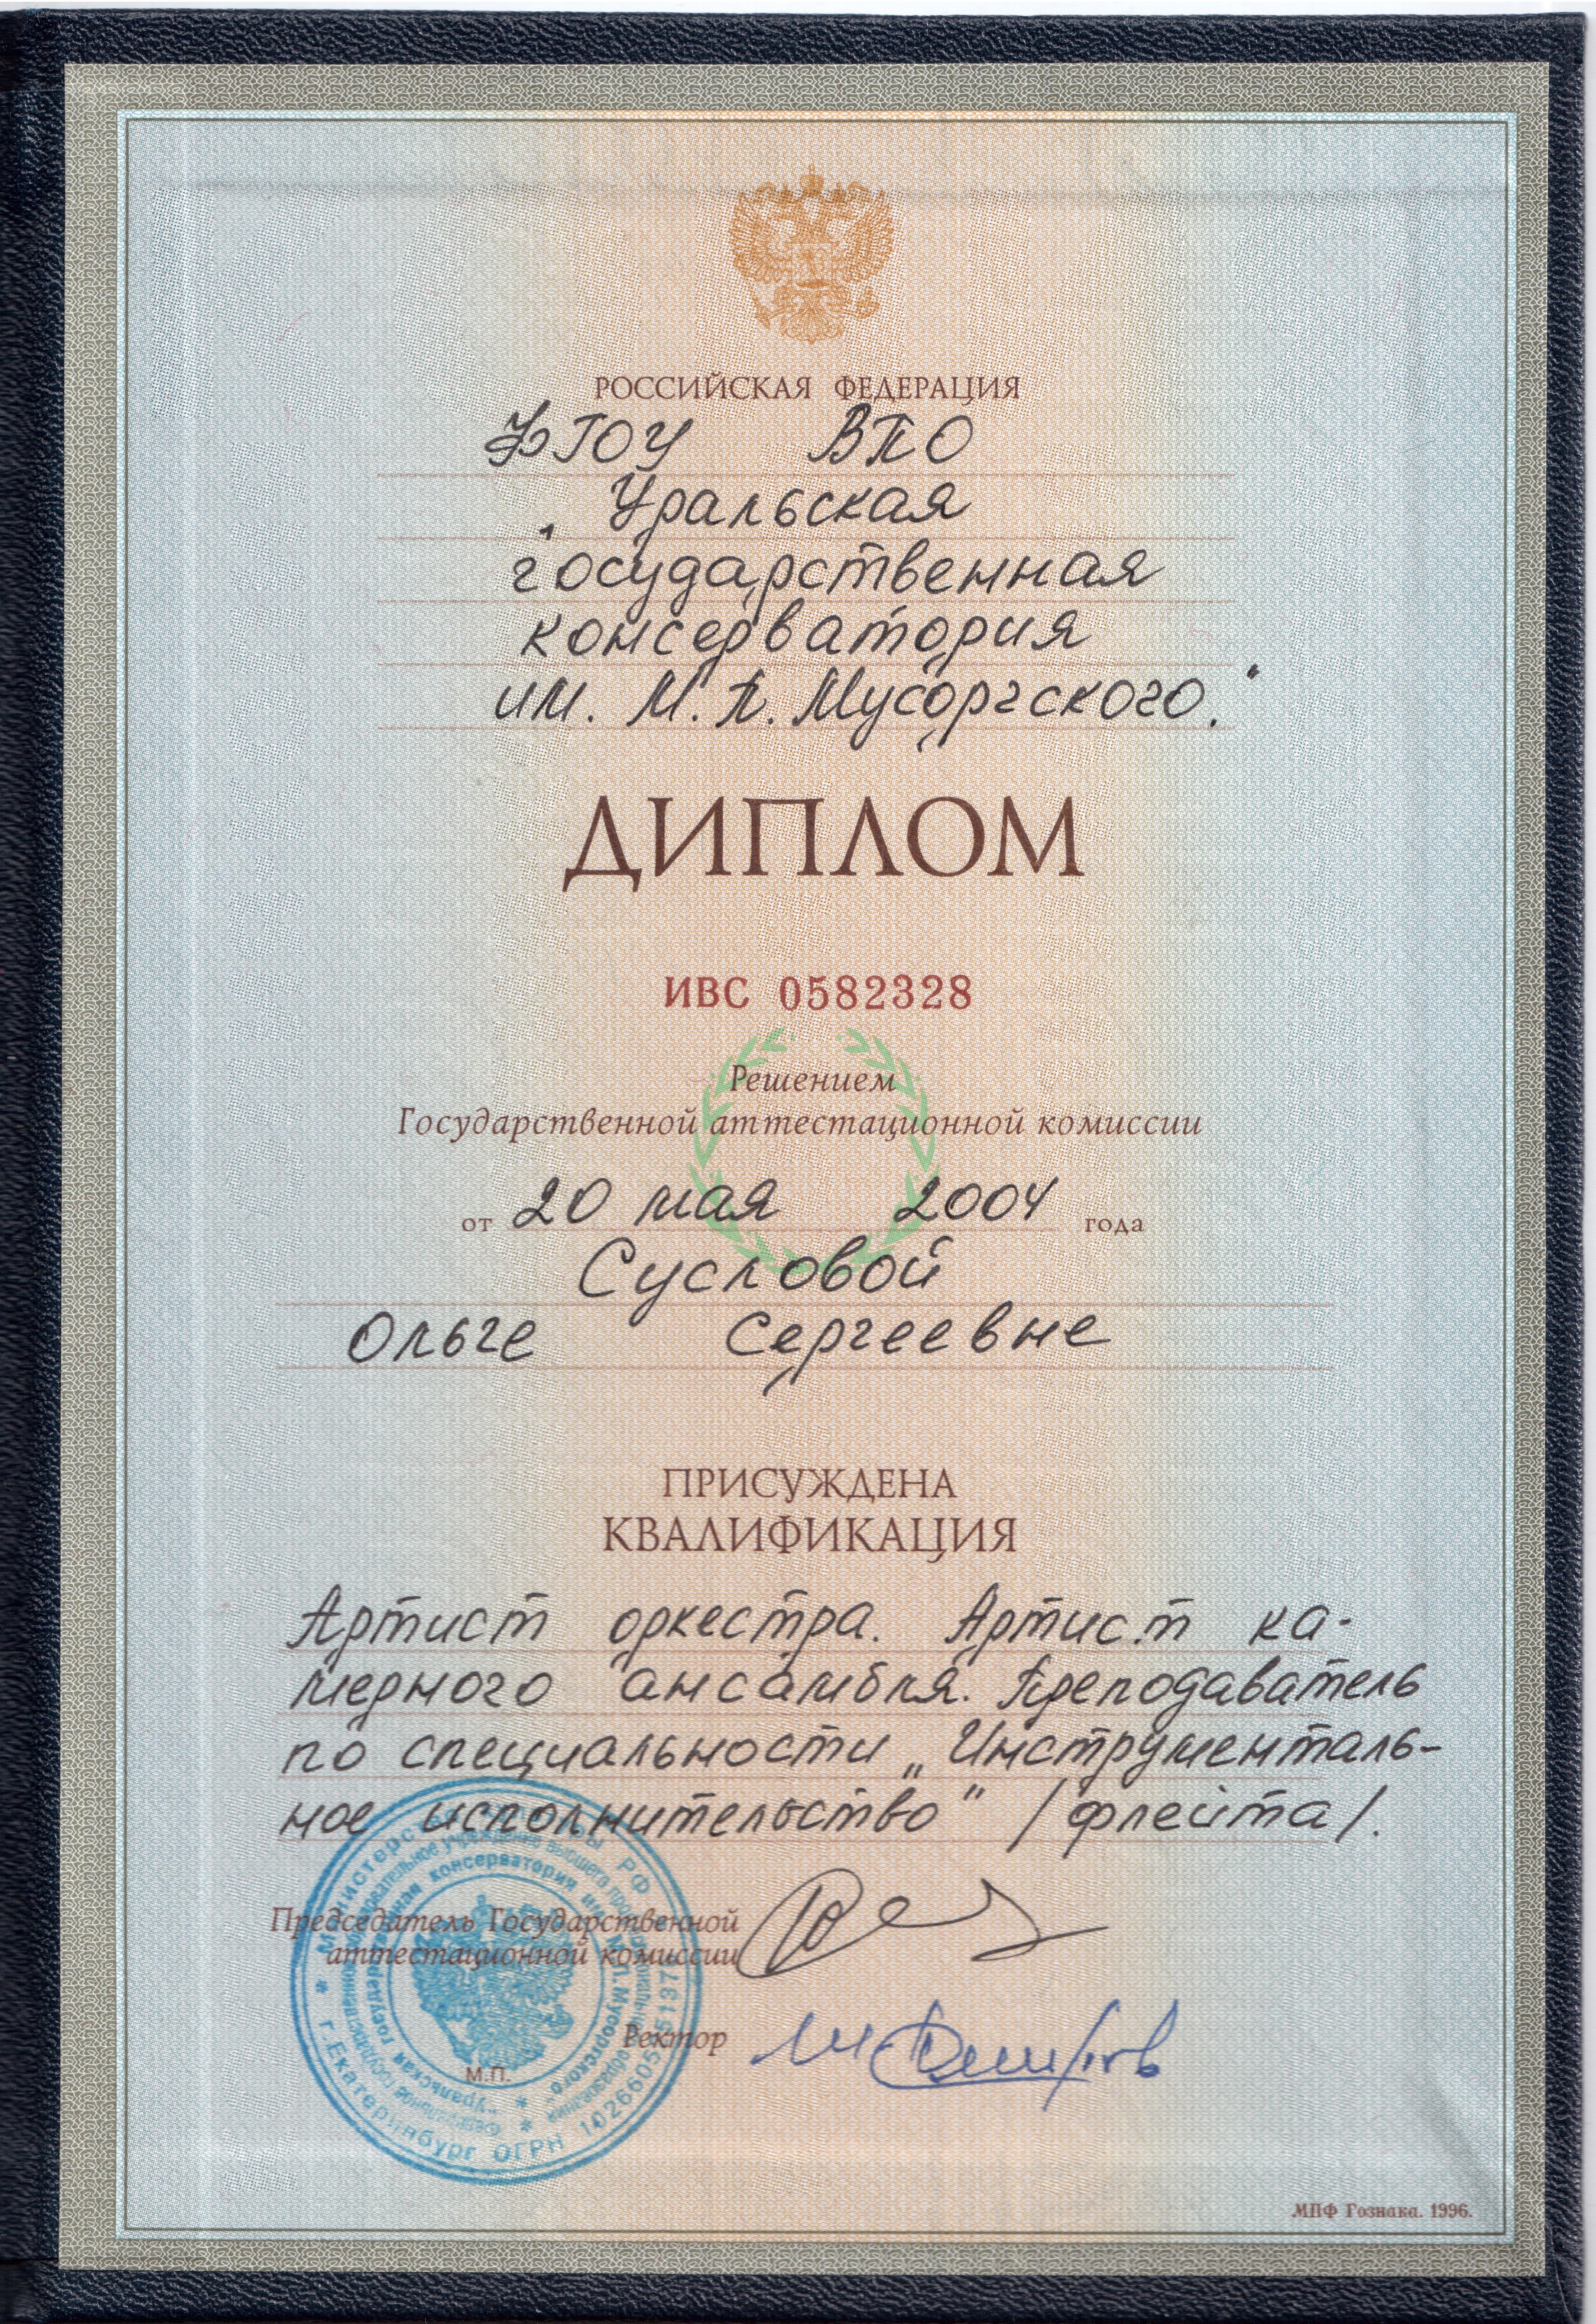 РОССИЙСКАЯ ФЕДЕРАЦИЯ
ФГОУ ВПО
„Уральская
государственная
консерватория
им. М.П. Мусоргского."
ДИПЛОМ
ИВС 0582328
Решением
Государственной аттестационной комиссии
от 20 мая 2004 года
Сусловой
Ольге Сергеевне
ПРИСУЖДЕНА
КВАЛИФИКАЦИЯ
Артист оркестра. Артист ка-
мерного ансамбля. Преподаватель
по специальности „Инструменталь-
ное исполнительство" /флейта/.
Председатель Государственной
аттестационной комиссии
Ректор
М.П.
Министерство культуры РФ
* г.Екатеринбург ОГРН
"Уральская государственная консерватория им. М.П.Мусоргского"
МПФ Гознака. 1996.